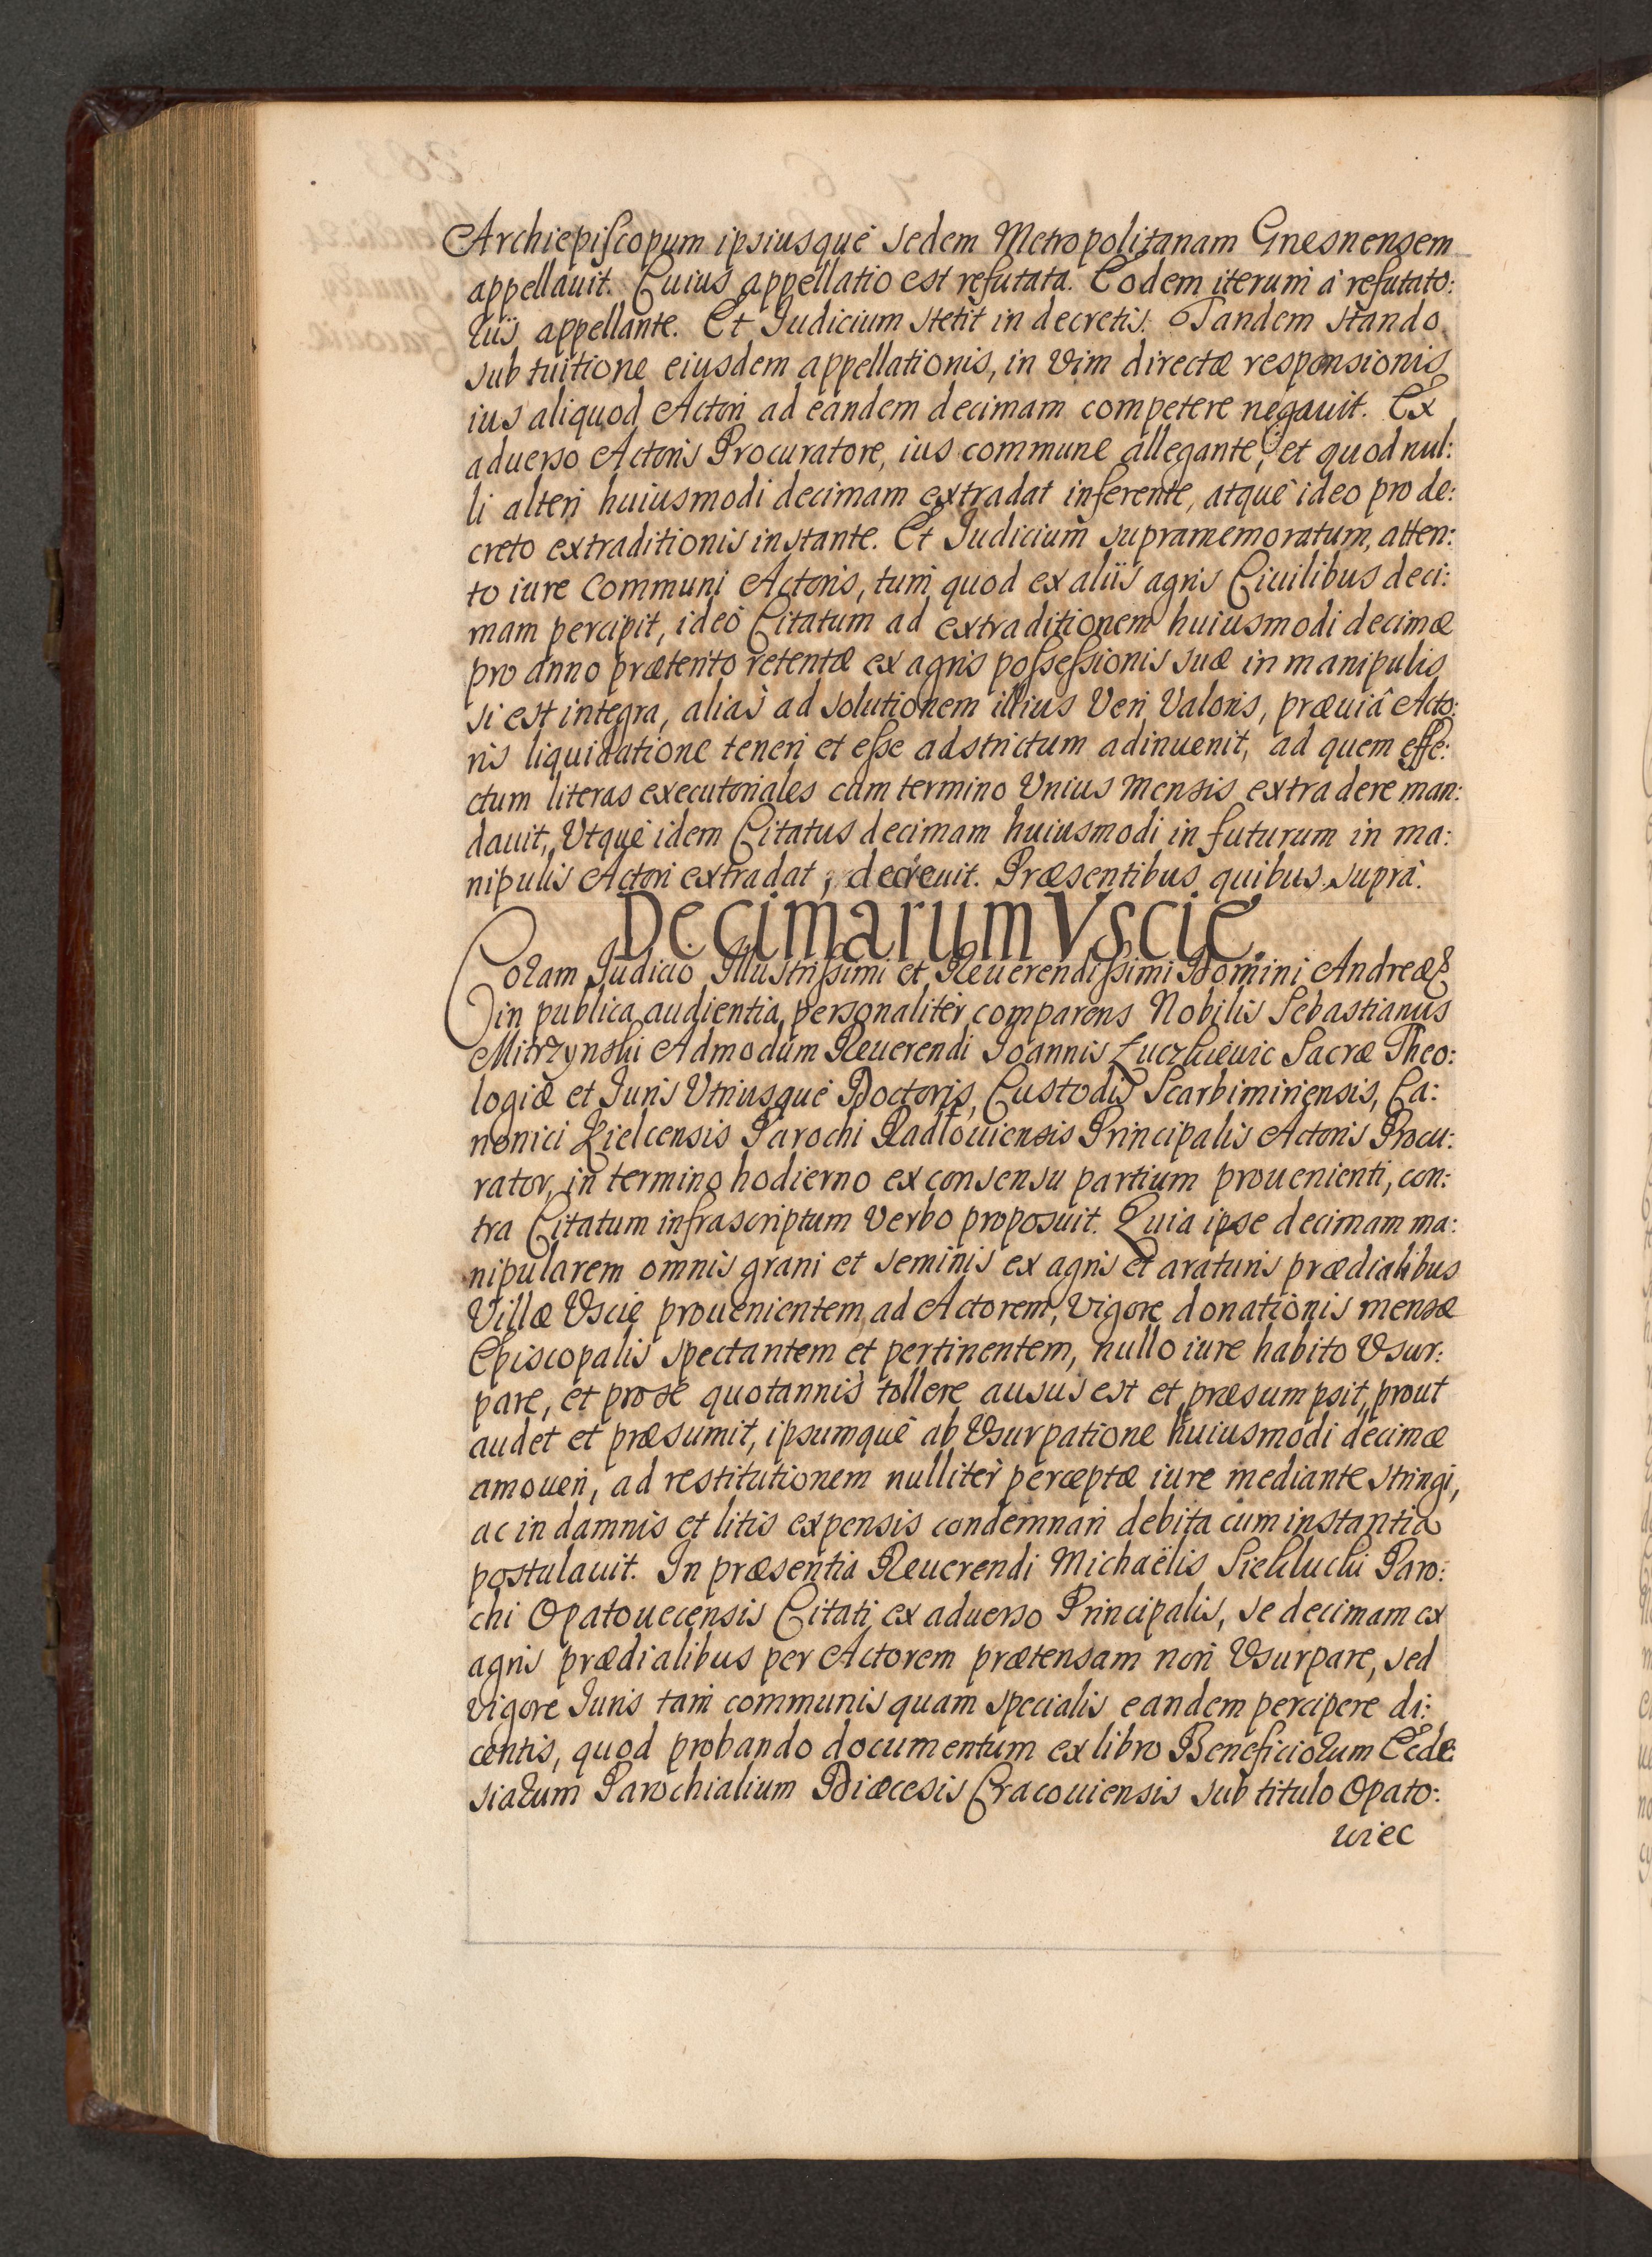 Archiepiscopum ipsiusquè sedem Metropolitanam Gnesnensem
appellauit. Cuius appellatio est refutata. Eodem iterum à refutato:
riis appellante. Et Iudicium stetit in decretis. Tandem stando
sub tuitione eiusdem appellationis, in vim directæ responsionis
ius aliquod Actori ad eandem decimam competere negauit. Ex
aduerso Actoris Procuratore, ius commune allegante, et quod nul:
li alteri huiusmodi decimam extradat inferente, atquè ideo pro de:
creto extraditionis instante. Et Iudicium supramemoratum, atten:
to iure Communi Actoris, tum quod ex aliis agris Ciuilibus deci:
mam percipit, ideò Citatum ad extraditionem huiusmodi decimæ
pro anno præterito retentæ ex agris possessionis suæ in manipulis
si est integra, aliàs ad solutionem illius Veri Valoris, præuiâ Acto:
ris liquidatione teneri et esse adstrictum adinuenit, ad quem effe:
ctum literas executoriales cum termino Vnius Mensis extradere man:
dauit, Vtquè idem Citatus decimam huiusmodi in futurum in ma:
nipulis Actori extradat, decreuit. Præsentibus quibus suprà.
Decimarum Vscie.
Coram Iudicio Illustrissimi et Reuerendissimi Domini Andreæ &
in publica audientia personalitèr comparens Nobilis Sebastianus
Mitrzynski Admodum Reuerendi Ioannis Łuczkiewic Sacræ Theo:
logiæ et Iuris Vtriusquè Doctoris, Custodis Scarbimiriensis, Ca:
nonici Kielcensis Parochi Radłouiensis Principalis Actoris Procu:
rator, in termino hodierno ex consensu partium prouenienti, con:
tra Citatum infrascriptum Verbo proposuit. Quia ipse decimam ma:
nipularem omnis grani et seminis ex agris et araturis prædialibus
Villæ Vscie prouenientem, ad Actorem, vigore donationis mensæ
Episcopalis spectantem et pertinentem, nullo iure habito Vsur:
pare, et pro se quotannis tollere ausus est et præsumpsit, prout
audet et præsumit, ipsumquè ab Vsurpatione huiusmodi decimæ
amoueri, ad restitutionem nullitèr perceptæ iure mediante stringi,
ac in damnis et litis expensis condemnari debita cum instantia
postulauit. In præsentia Reuerendi Michaëlis Siekluchi Paro:
chi Opatouecensis Citati ex aduerso Principalis, se decimam ex
agris prædialibus per Actorem prætensam non Vsurpare, sed
vigore Iuris tam communis quam specialis eandem percipere di:
centis, quod probando documentum ex libro Beneficiorum Eccle:
siarum Parochialium Diæcesis Cracouiensis sub titulo Opato:
wiec